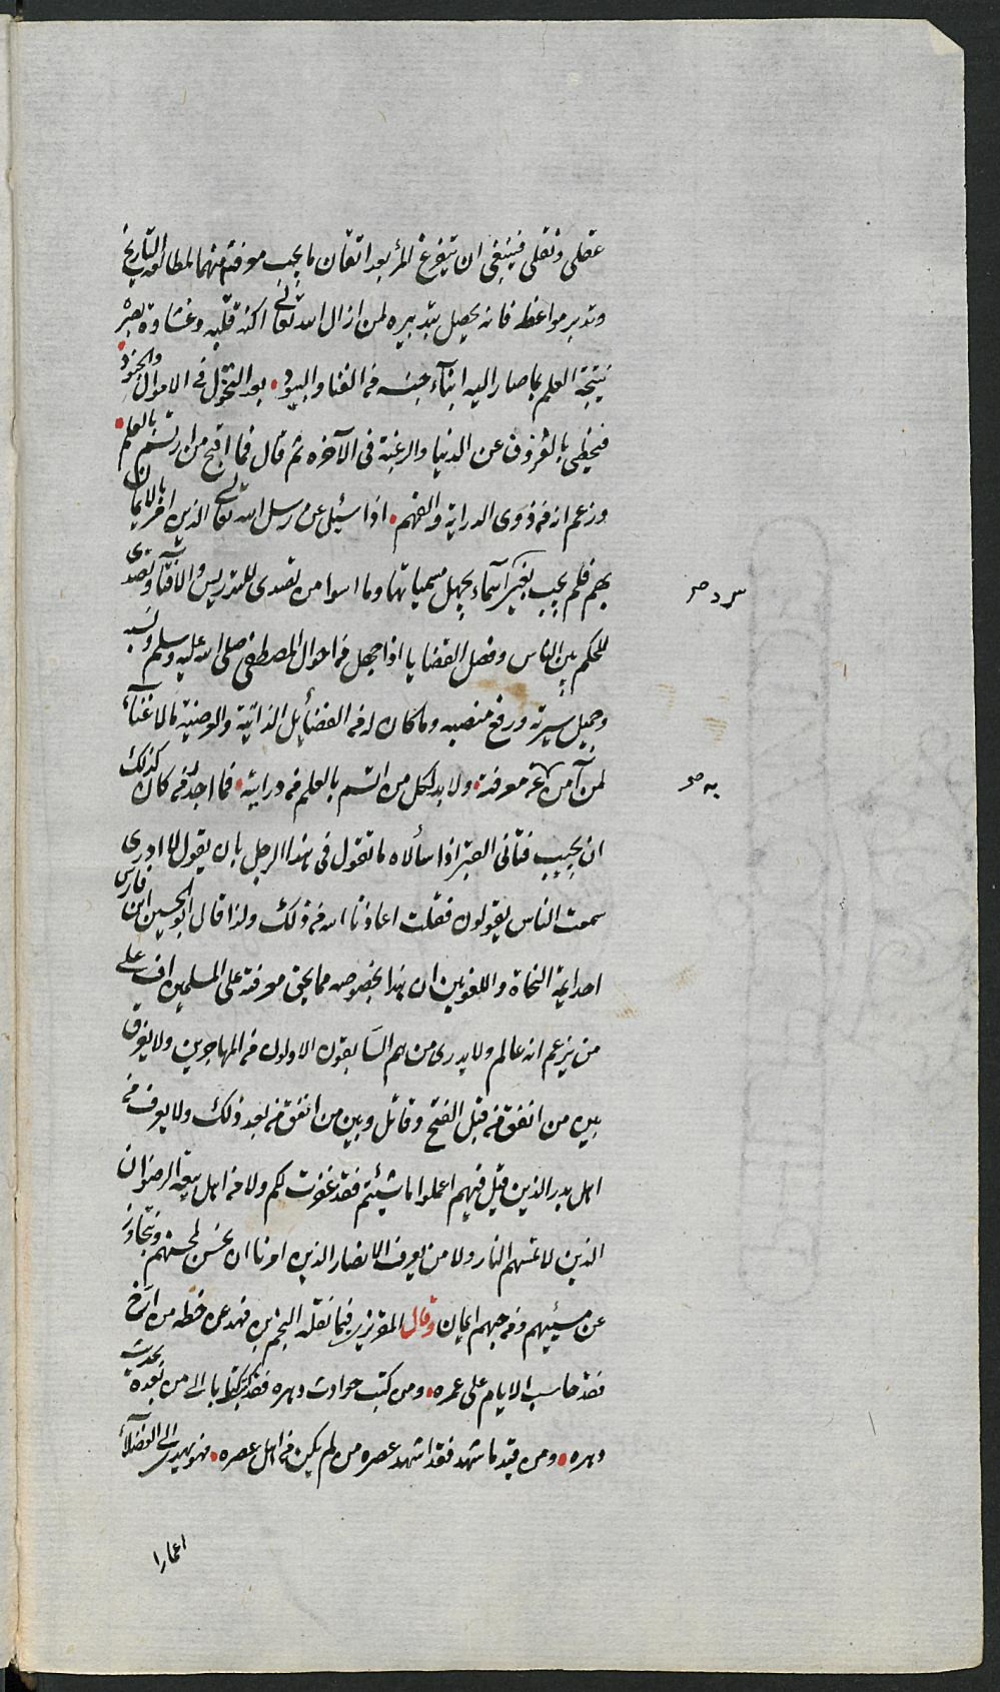 عقلى ونقلى فينبغى ان يتفرغ المرء بعد اتقان ما يجب معرفته منهما لمطالعة التاريخ
وتدبر مواعظه فانه يحصل بتدبيره لمن ازال الله تعالى اكنة قلبه وغشاوة بصره
نتيجة العلم بما صار اليه ابناء جنسه من الفنا والبيود بعد التخول فى الاموال والجنود
فيحظى بالعزوف عن الدنيا والرغبة فى الآخره ثم قال فما اقبح من ارتسم بالعلم
وزعم انه من ذوى الدراية والفهم اذا سئل عن رسل الله تعالى الذين امر بالايمان
بهم فلم يجب بغير اسماء يجهل مسمياتها وما اسوا من تصدى للتدريس والافتاء وتصدى
سرد صح
للحكم بين الناس وفصل القضايا اذا جهل من احوال المصطفى صلى الله عليه وسلم ونسبه
وجميل سيرته ورفع منصبه وما كان له من الفضائل الذاتية والعرضية ما لا غناء
لمن آمن عن معرفته ولا بد لكل من اتسم بالعلم من درايته فما اجدر من كان كذلك
به صح
ان يجيب فتانى القبر اذا سألاه ما تقول فى هذا الرجل بان يقول لا ادرى
سمعت الناس يقولون فقلت اعاذنا الله من ذلك ولذا قال ابو الحسين ابن فارس
احد ايمة النحاة واللغويين ان هذا بخصوصه مما يحق معرفته على المسلمين اف على
من يزعم انه عالم ولا يدرى من هم السابقون الاولون من المهاجرين ولا يفرق
بين من انفق من قبل الفتح وقاتل وبين من انفق من بعد ذلك ولا يعرف من
اهل بدر الذين قيل فيهم اعملوا ما شيئتم فقد غفرت لكم ولا من اهل بيعة الرضوان
الذين لا تمسهم النار ولا من يعرف الانصار الذين امرنا ان نحسن لمحسنهم ونتجاوز
عن مسيئهم ومن حبهم ايمان وقال المقريزى فيما نقله النجم بن فهد عن خطه من ارخ
فقد حاسب الايام على عمره ومن كتب حوادث دهره فقد كتب كتابا الى من بعده بحديث
دهره ومن قيد ما شهد فقد اشهد عصره من لم يكن من اهل عصره فهو يهدى الى الفضلاء
اعمارا